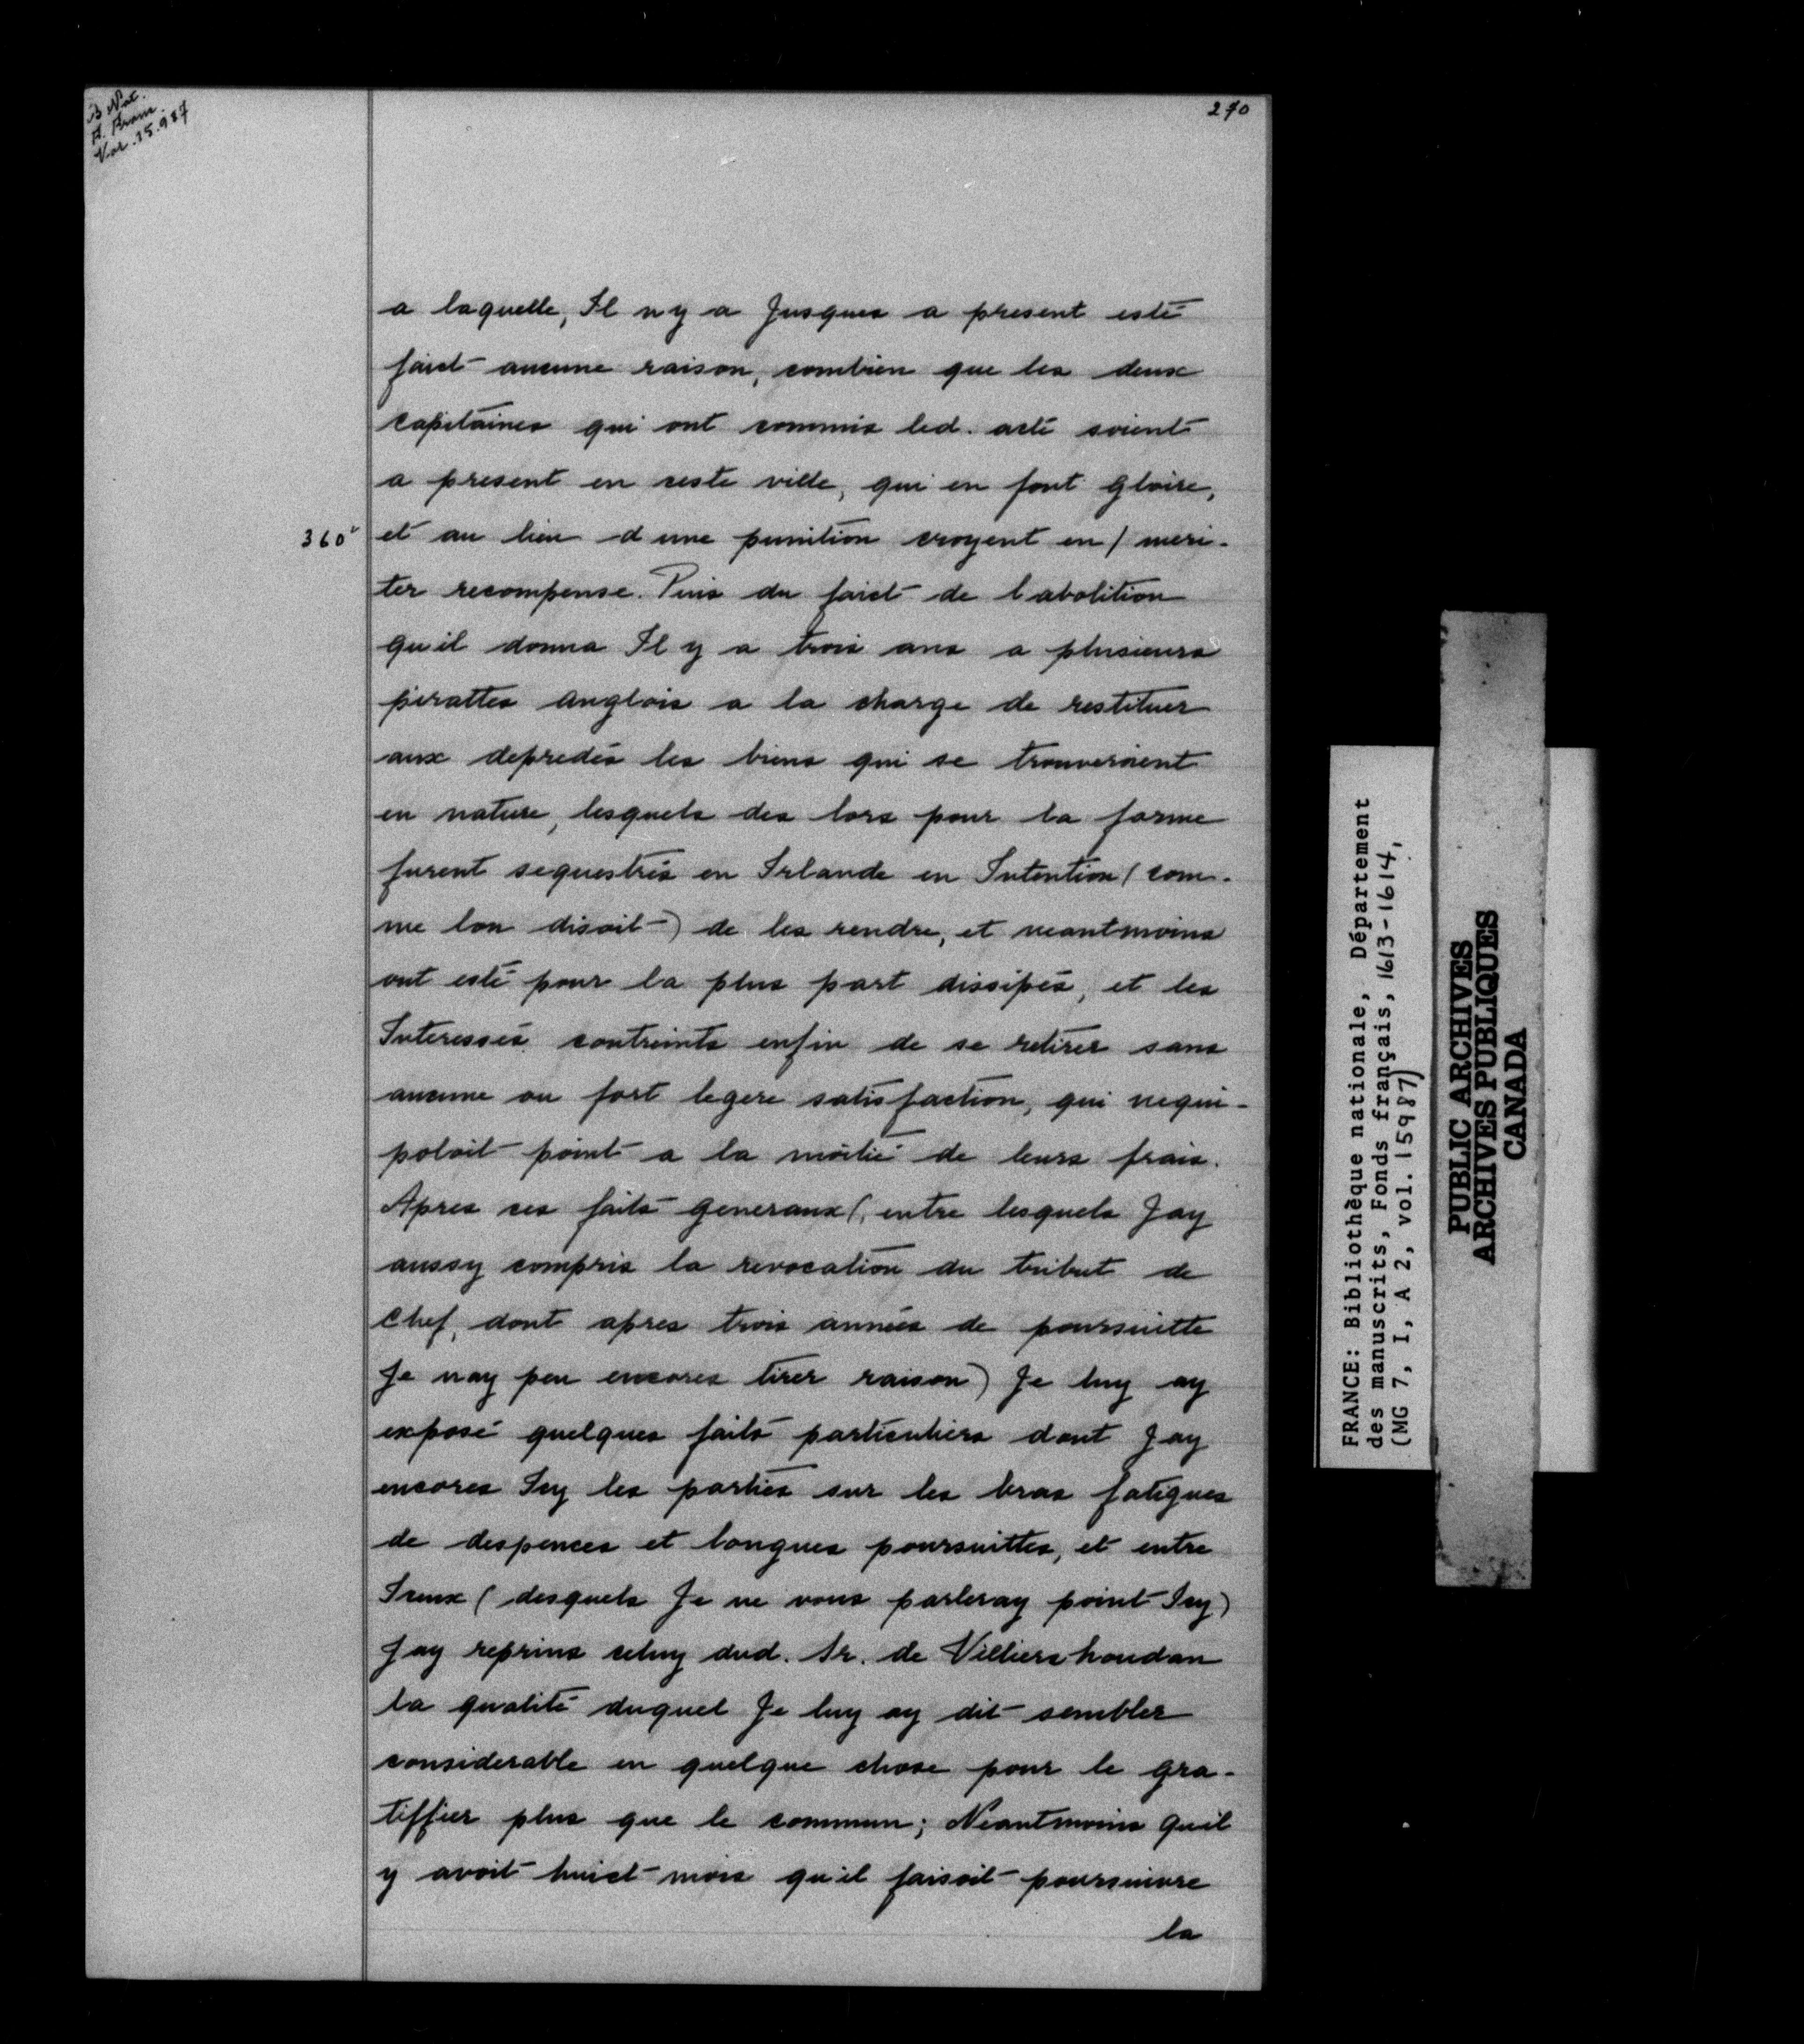 B Nat.
F. Franc.
Vor. 15.987
270
a laquelle, Il n y a Jusques a present esté
faict aucune raison, combien que les deux
capitaines qui ont commis led. acte soient
a present en ceste ville, qui en font gloire,
360v et au lieu d une punition croyent en / meri-
ter recompense. Puis du faict de l abolition
qu il donna Il y a trois ans a plusieurs
pirattes anglois a la charge de restituer
aux depredés les biens qui se trouveroient
en nature, lesquels des lors pour la forme
furent sequestrés en Irlande en Intention (com-
me lon disoit) de les rendre, et neantmoins
ont esté pour la plus part dissipés, et les
Interessés contreints enfin de se retirer sans
aucune ou fort legere satisfaction, qui nequi-
poloit point a la moitié de leurs frais.
Apres ces faits generaux (, entre lesquels Jay
aussy compris la revocation du tribut de
Chef, dont apres trois années de poursuitte
Je nay peu encores tirer raison) Je luy ay
exposé quelques faits particuliers dont Jay
encores Icy les parties sur les bras fatigues
de despences et longues poursuittes, et entre
Iceux (desquels Je ne vous parleray point Icy)
Jay reprins celuy dud. Sr. de Villiers houdan
la qualité duquel Je luy ay dit sembler
considerable en quelque chose pour le gra-
tiffier plus que le commun; Neantmoins qu il
y avoit huict mois qu il faisoit poursuivre
la
FRANCE: Bibliothèque nationale, Département
des manuscrits, Fonds français, 1613-1614,
(MG 7, I, A 2, vol. 15987)
PUBLIC ARCHIVES
ARCHIVES PUBLIQUES
CANADA